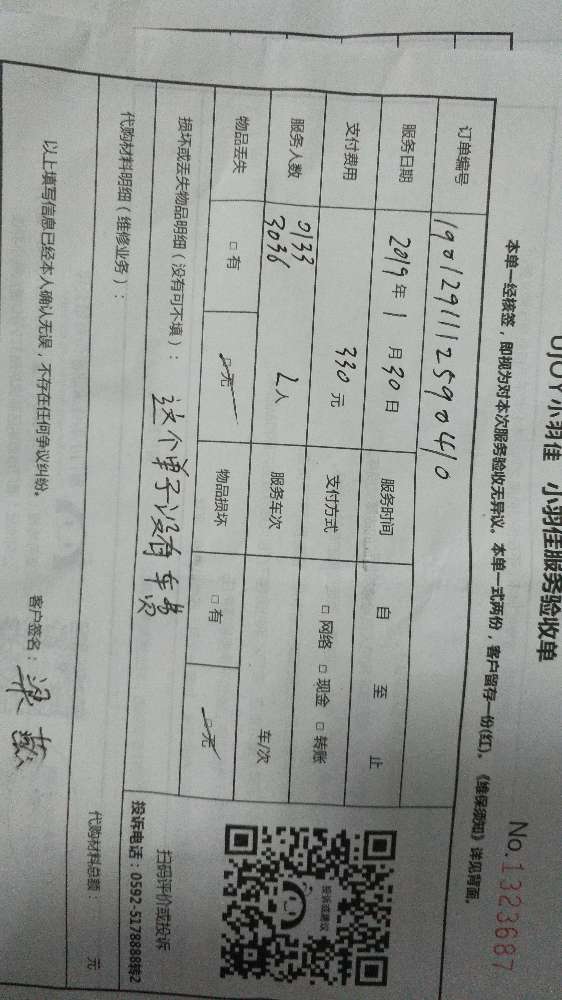 UJOY小羽佳 小羽佳服务验收单
No.1323687
本单一经核签，即视为对本次服务验收无异议。本单一式两份，客户留存一份(红)。《维保须知》详见背面。
订单编号 190129111259041​0
服务日期 2019年1月30日 服务时间 自 至 止
支付费用 330元 支付方式 □网络 □现金 □转账
服务人数 0133 3036 2人 服务车次 车/次
物品丢失 □有 □无 物品损坏 □有 □无
损坏或丢失物品明细（没有可不填）： 这个单子没有车费
投诉或建议
扫码评价或投诉
投诉电话：0592-5178888转2
代购材料明细（维修业务）： 代购材料总额： 元
以上填写信息已经本人确认无误，不存在任何争议纠纷。 客户签名：梁